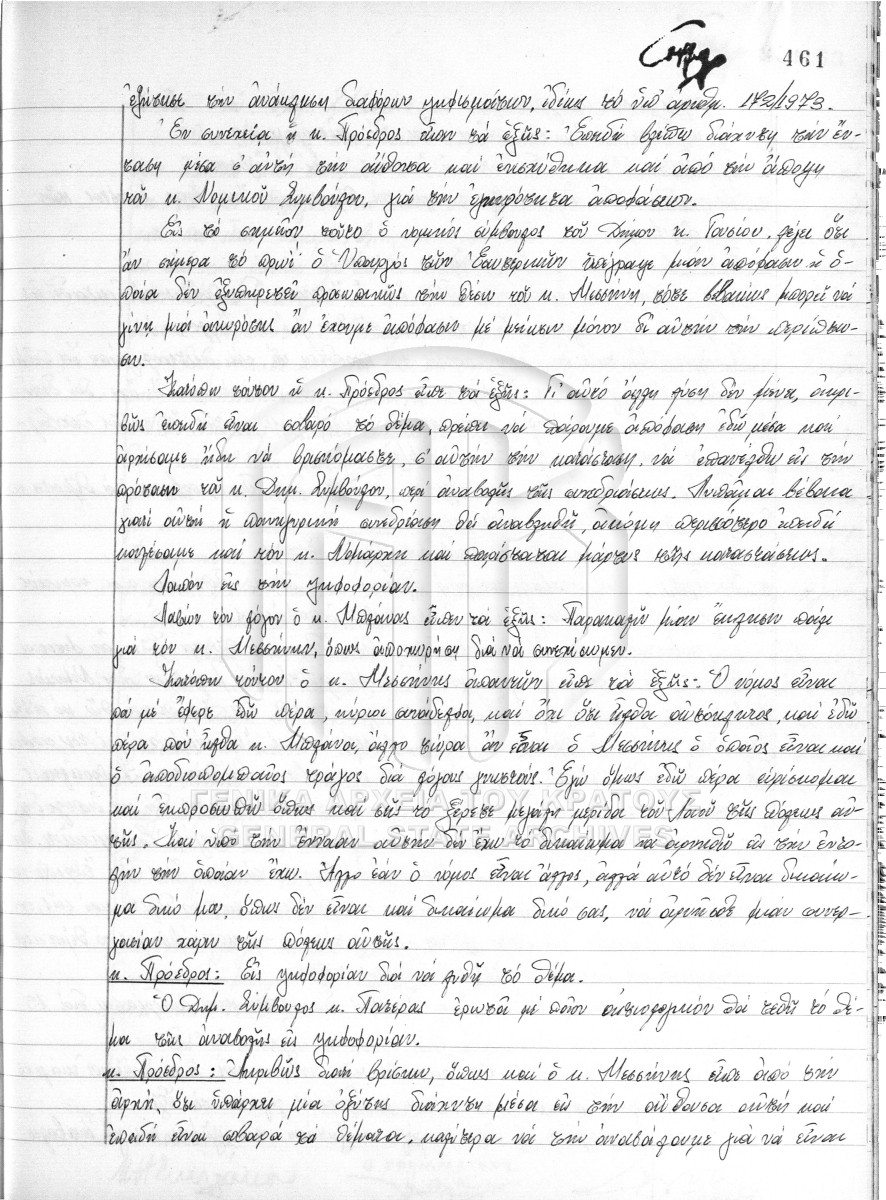 461
ἐζήτησε τὴν ἀνάκλησι διαφόρων ψηφισμάτων, ἰδίως τὸ ὑπ' ἀριθμ. 172/1973.
Ἐν συνεχείᾳ ὁ κ. Πρόεδρος εἶπε τὰ ἑξῆς: Ἐπειδὴ βλέπω διάχυτη τὴν ἔν-
ταση μέσα σ' αὐτὴ τὴν αἴθουσα καὶ ἐνισχύθηκα καὶ ἀπὸ τὴν ἄποψη
τοῦ κ. Νομικοῦ Συμβούλου, γιὰ τὴν ἐγκυρότητα ἀποφάσεων.
Εἰς τὸ σημεῖον τοῦτο ὁ νομικὸς σύμβουλος τοῦ Δήμου κ. λέγει ὅτι
ἂν σήμερα τὸ πρωὶ ὁ Ὑπουργὸς τῶν Ἐσωτερικῶν ὑπέγραψε μιὰν ἀπόφασιν ἡ ὁ-
ποία δὲν ἐξυπηρετεῖ προσωπικῶς τὴν θέσιν τοῦ κ. Μεσσήνη, τότε βεβαίως μπορεῖ νὰ
γίνη μιὰ ἀκυρότης ἂν ἔχουμε ἀπόφασιν μὲ μείωσιν μόνον δι' αὐτὴν τὴν περίπτω-
σιν.
Κατόπιν τούτου ὁ κ. Πρόεδρος εἶπε τὰ ἑξῆς: Γι' αὐτὸ ἄλλη λύση δὲν μένει, ἀκρι-
βῶς ἐπειδὴ εἶναι σοβαρὸ τὸ θέμα, πρέπει νὰ πάρουμε ἀπόφαση ἐδῶ μέσα καὶ
ἀρχίσαμε ἤδη νὰ βρισκόμαστε, σ' αὐτὴν τὴν κατάσταση, νὰ ἐπανέλθω εἰς τὴν
πρότασιν τοῦ κ. Δημ. Συμβούλου, περὶ ἀναβολῆς τῆς συνεδριάσεως. Λυπᾶμαι βέβαια
γιατὶ αὐτὴ ἡ πανηγυρικὴ συνεδρίαση θὰ ἀναβληθῆ, ἀκόμη περισσότερο ἐπειδὴ
καλέσαμε καὶ τὸν κ. Νομάρχη καὶ παρίσταται μάρτυς τῆς καταστάσεως.
Λοιπὸν εἰς τὴν ψηφοφορίαν.
Λαβὼν τὸν λόγον ὁ κ. Μπλάνας εἶπεν τὰ ἑξῆς: Παρακαλῶ μίαν ἔκκλησιν πάλι
γιὰ τὸν κ. Μεσσήνην, ὅπως ἀποχωρήση διὰ νὰ συνεχίσωμεν.
Κατόπιν τούτου ὁ κ. Μεσσήνης ἀπαντῶν εἶπε τὰ ἑξῆς: Ὁ νόμος εἶναι
ποὺ μὲ ἔφερε ἐδῶ πέρα, κύριοι συνάδελφοι, καὶ ὄχι ὅτι ἦλθα αὐτόκλητος, καὶ ἐδῶ
πέρα ποὺ ἦλθα κ. Μπλάνα, ἄλλο τώρα ἂν εἶναι ὁ Μεσσήνης ὁ ὁποῖος εἶναι καὶ
ὁ ἀποδιοπομπαῖος τράγος διὰ λόγους γνωστούς. Ἐγὼ ὅμως ἐδῶ πέρα εὑρίσκομαι
καὶ ἐκπροσωπῶ ὅπως καὶ σεῖς τὸ ξέρετε μεγάλη μερίδα τοῦ Λαοῦ τῆς πόλεως αὐ-
τῆς. Καὶ ὑπὸ τὴν ἔννοιαν αὐτὴν δὲν ἔχω τὸ δικαίωμα νὰ ἀρνηθῶ εἰς τὴν ἐντο-
λὴν τὴν ὁποίαν ἔχω. Ἄλλο ἐὰν ὁ νόμος εἶναι ἄλλος, ἀλλὰ αὐτὸ δὲν εἶναι δικαίω-
μα δικό μου, ὅπως δὲν εἶναι καὶ δικαίωμα δικό σας, νὰ ἀρνῆσθε μιὰν συνερ-
γασίαν χάριν τῆς πόλεως αὐτῆς.
κ. Πρόεδρος: Εἰς ψηφοφορίαν διὰ νὰ λυθῆ τὸ θέμα.
Ὁ Δημ. Σύμβουλος κ. Πατέρας ἐρωτᾶ μὲ ποῖον αἰτιολογικὸν θὰ τεθῆ τὸ θέ-
μα τῆς ἀναβολῆς εἰς ψηφοφορίαν.
κ. Πρόεδρος: Ἀκριβῶς διότι βρίσκω, ὅπως καὶ ὁ κ. Μεσσήνης εἶπε ἀπὸ τὴν
ἀρχή, ὅτι ὑπάρχει μία ὀξύτης διάχυτη μέσα εἰς τὴν αἴθουσα αὐτὴ καὶ
ἐπειδὴ εἶναι σοβαρὰ τὰ θέματα, καλύτερα νὰ τὴν ἀναβάλουμε γιὰ νὰ εἶναι
ΓΕΝΙΚΑ ΑΡΧΕΙΑ ΤΟΥ ΚΡΑΤΟΥΣ
GENERAL STATE ARCHIVES